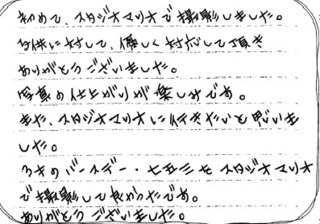 初めて、スタジオマリオで撮影しました。
子供に対して、優しく対応して頂き
ありがとうございました。
写真の仕上がりが楽しみです。
また、スタジオマリオに行きたいと思いま
した。
3才のバースデー・七五三もスタジオマリオ
で撮影して良かったです。
ありがとうございました。